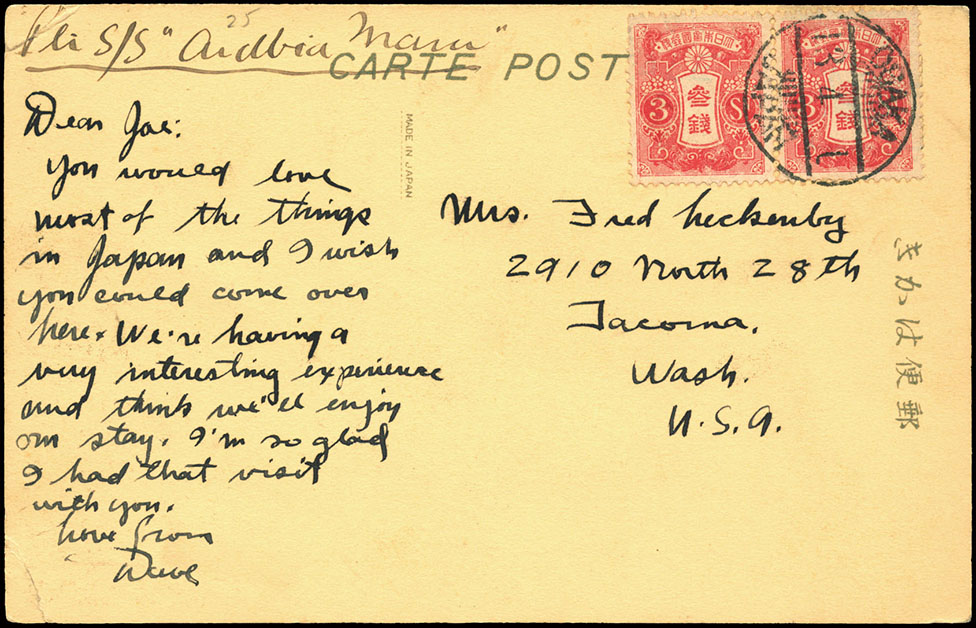 S/S "Arabia Maru"
25
CARTE POST
MADE IN JAPAN
Dear Joe:
You would love
most of the things
in Japan and I wish
you could come over
here. We're having a
very interesting experience
and think we'll enjoy
our stay. I'm so glad
I had that visit
with you.
Love from
Mrs. Fred Leckenby
2910 North 28th
Tacoma,
Wash.
U.S.A.
大日本帝國郵便
3 參錢 S
3 參錢
OSAKA
郵便はかき